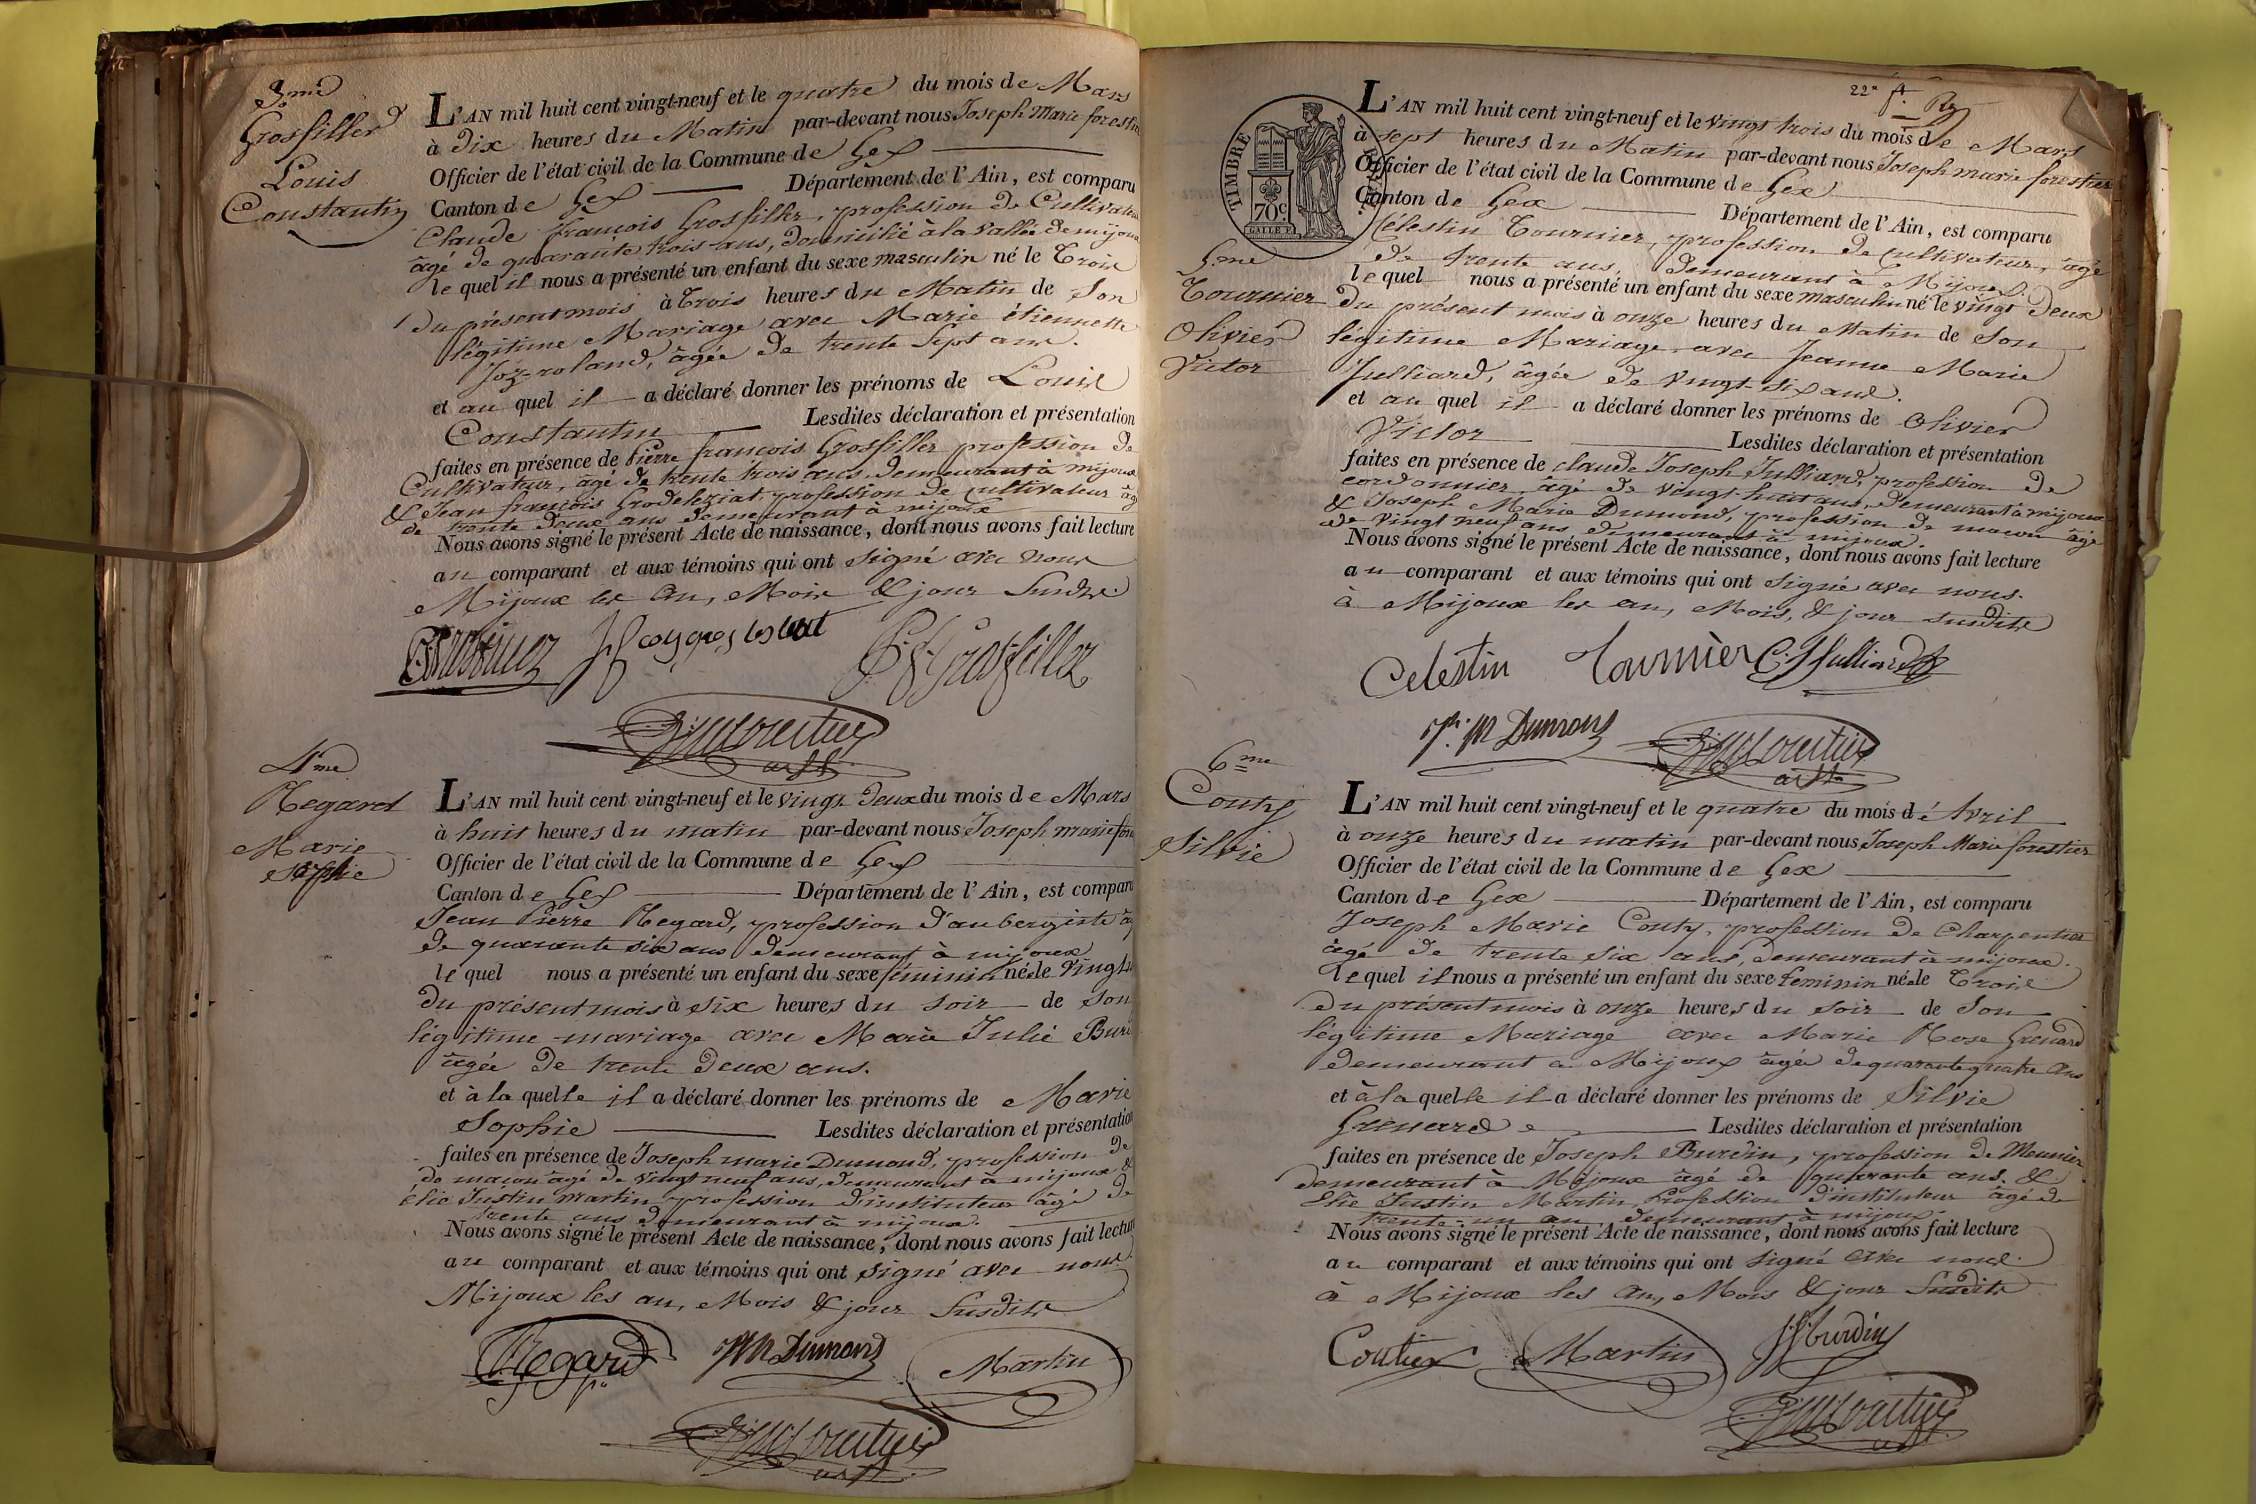 3.me
Grosfiller
Louis
Constantin
L'AN mil huit cent vingt-neuf et le quatre du mois de Mars
à Dix heures du Matin par-devant nous Joseph Marie forestier
Officier de l'état civil de la Commune de Gex
Canton de Gex Département de l'Ain, est comparu
Claude françois Grosfiller, profession de Cultivateur
âgé de quarante trois ans, domicilié à la vallée de mijoux
lequel il nous a présenté un enfant du sexe masculin né le Trois
du présent mois à trois heures du Matin de Son
légitime Mariage avec Marie étiennette
Joz-roland, âgée de trente Sept ans.
et au quel il a déclaré donner les prénoms de Louis
Constantin Lesdites déclaration et présentation
faites en présence de Pierre françois Grosfiller profession de
Cultivateur, âgé de trente trois ans, demeurant à mijoux
& Jean françois Grodeleziat, profession de cultivateur âgé
de trente deux ans demeurant à mijoux
Nous avons signé le présent Acte de naissance, dont nous avons fait lecture
au comparant et aux témoins qui ont signé avec nous
Mijoux les an, Mois & jour Susdits
P. f. Grosfiller
4me
Regard
Marie
Sophie
L'AN mil huit cent vingt-neuf et le vingt Deux du mois de Mars
à huit heures du matin par-devant nous Joseph marie fore
Officier de l'état civil de la Commune de Gex
Canton de Gex Département de l'Ain, est comparu
Jean Pierre Regard, profession d'aubergiste âg
de quarante six ans demeurant à mijoux
lequel nous a présenté un enfant du sexe féminin née le vingt
du présent mois à six heures du soir de son
légitime mariage avec Marie Julie Burd
âgée de trente Deux ans.
et à la quelle il a déclaré donner les prénoms de Marie
Sophie Lesdites déclaration et présentation
faites en présence de Joseph marie Dumond, profession de
de maçon âgé de vingt neuf ans, demeurant à mijoux &
Elie Justin martin, profession d'instituteur âgé de
trente ans demeurant à mijoux.
Nous avons signé le présent Acte de naissance, dont nous avons fait lecture
au comparant et aux témoins qui ont signé avec nous
Mijoux les an, Mois & jour Susdits
Regard JM Dumond Martin
22e f.t
TIMBRE
70c.
L'AN mil huit cent vingt-neuf et le vingt trois du mois de Mars
à sept heures du Matin par-devant nous Joseph marie forestier
Officier de l'état civil de la Commune de Gex
Canton de Gex Département de l'Ain, est comparu
Célestin Tournier, profession de cultivateur, âgé
de trente ans, demeurant à Mijoux.
lequel nous a présenté un enfant du sexe masculin né le vingt Deux
du présent mois à onze heures du Matin de Son
légitime Mariage avec Jeanne Marie
Julliard, âgée de vingt six ans.
et au quel il a déclaré donner les prénoms de Olivier
Victor Lesdites déclaration et présentation
faites en présence de claude Joseph Julliard, profession de
cordonnier âgé de vingt-huit ans, demeurant à mijoux
& Joseph Marie Dumond, profession de maçon âgé
de vingt neuf ans demeurant à mijoux.
Nous avons signé le présent Acte de naissance, dont nous avons fait lecture
au comparant et aux témoins qui ont signé avec nous.
à Mijoux les an, Mois, & jour susdits
5.me
Tournier
Olivier
Victor
Celestin Tournier C. J Julliard
Jh. M Dumond
6me
Couty
Silvie
L'AN mil huit cent vingt-neuf et le quatre du mois d'Avril
à onze heures du matin par-devant nous Joseph Marie forestier
Officier de l'état civil de la Commune de Gex
Canton de Gex Département de l'Ain, est comparu
Joseph Marie Couty, profession de Charpentier
âgé de trente six ans, demeurant à mijoux.
lequel il nous a présenté un enfant du sexe feminin née le Trois
du présent mois à onze heures du soir de Son
légitime Mariage avec Marie Rose Grenard
demeurant à Mijoux âgée de quarante quatre ans
et à la quelle il a déclaré donner les prénoms de Silvie
Grenard Lesdites déclaration et présentation
faites en présence de Joseph Burdin, profession de Meunier
demeurant à Mijoux âgé de quarante ans, &
Elie Justin Martin, Profession d'instituteur âgé de
trente un an demeurant à mijoux.
Nous avons signé le présent Acte de naissance, dont nous avons fait lecture
au comparant et aux témoins qui ont signé avec nous.
à Mijoux les an, Mois & jour Susdits
Coutier Martin burdin